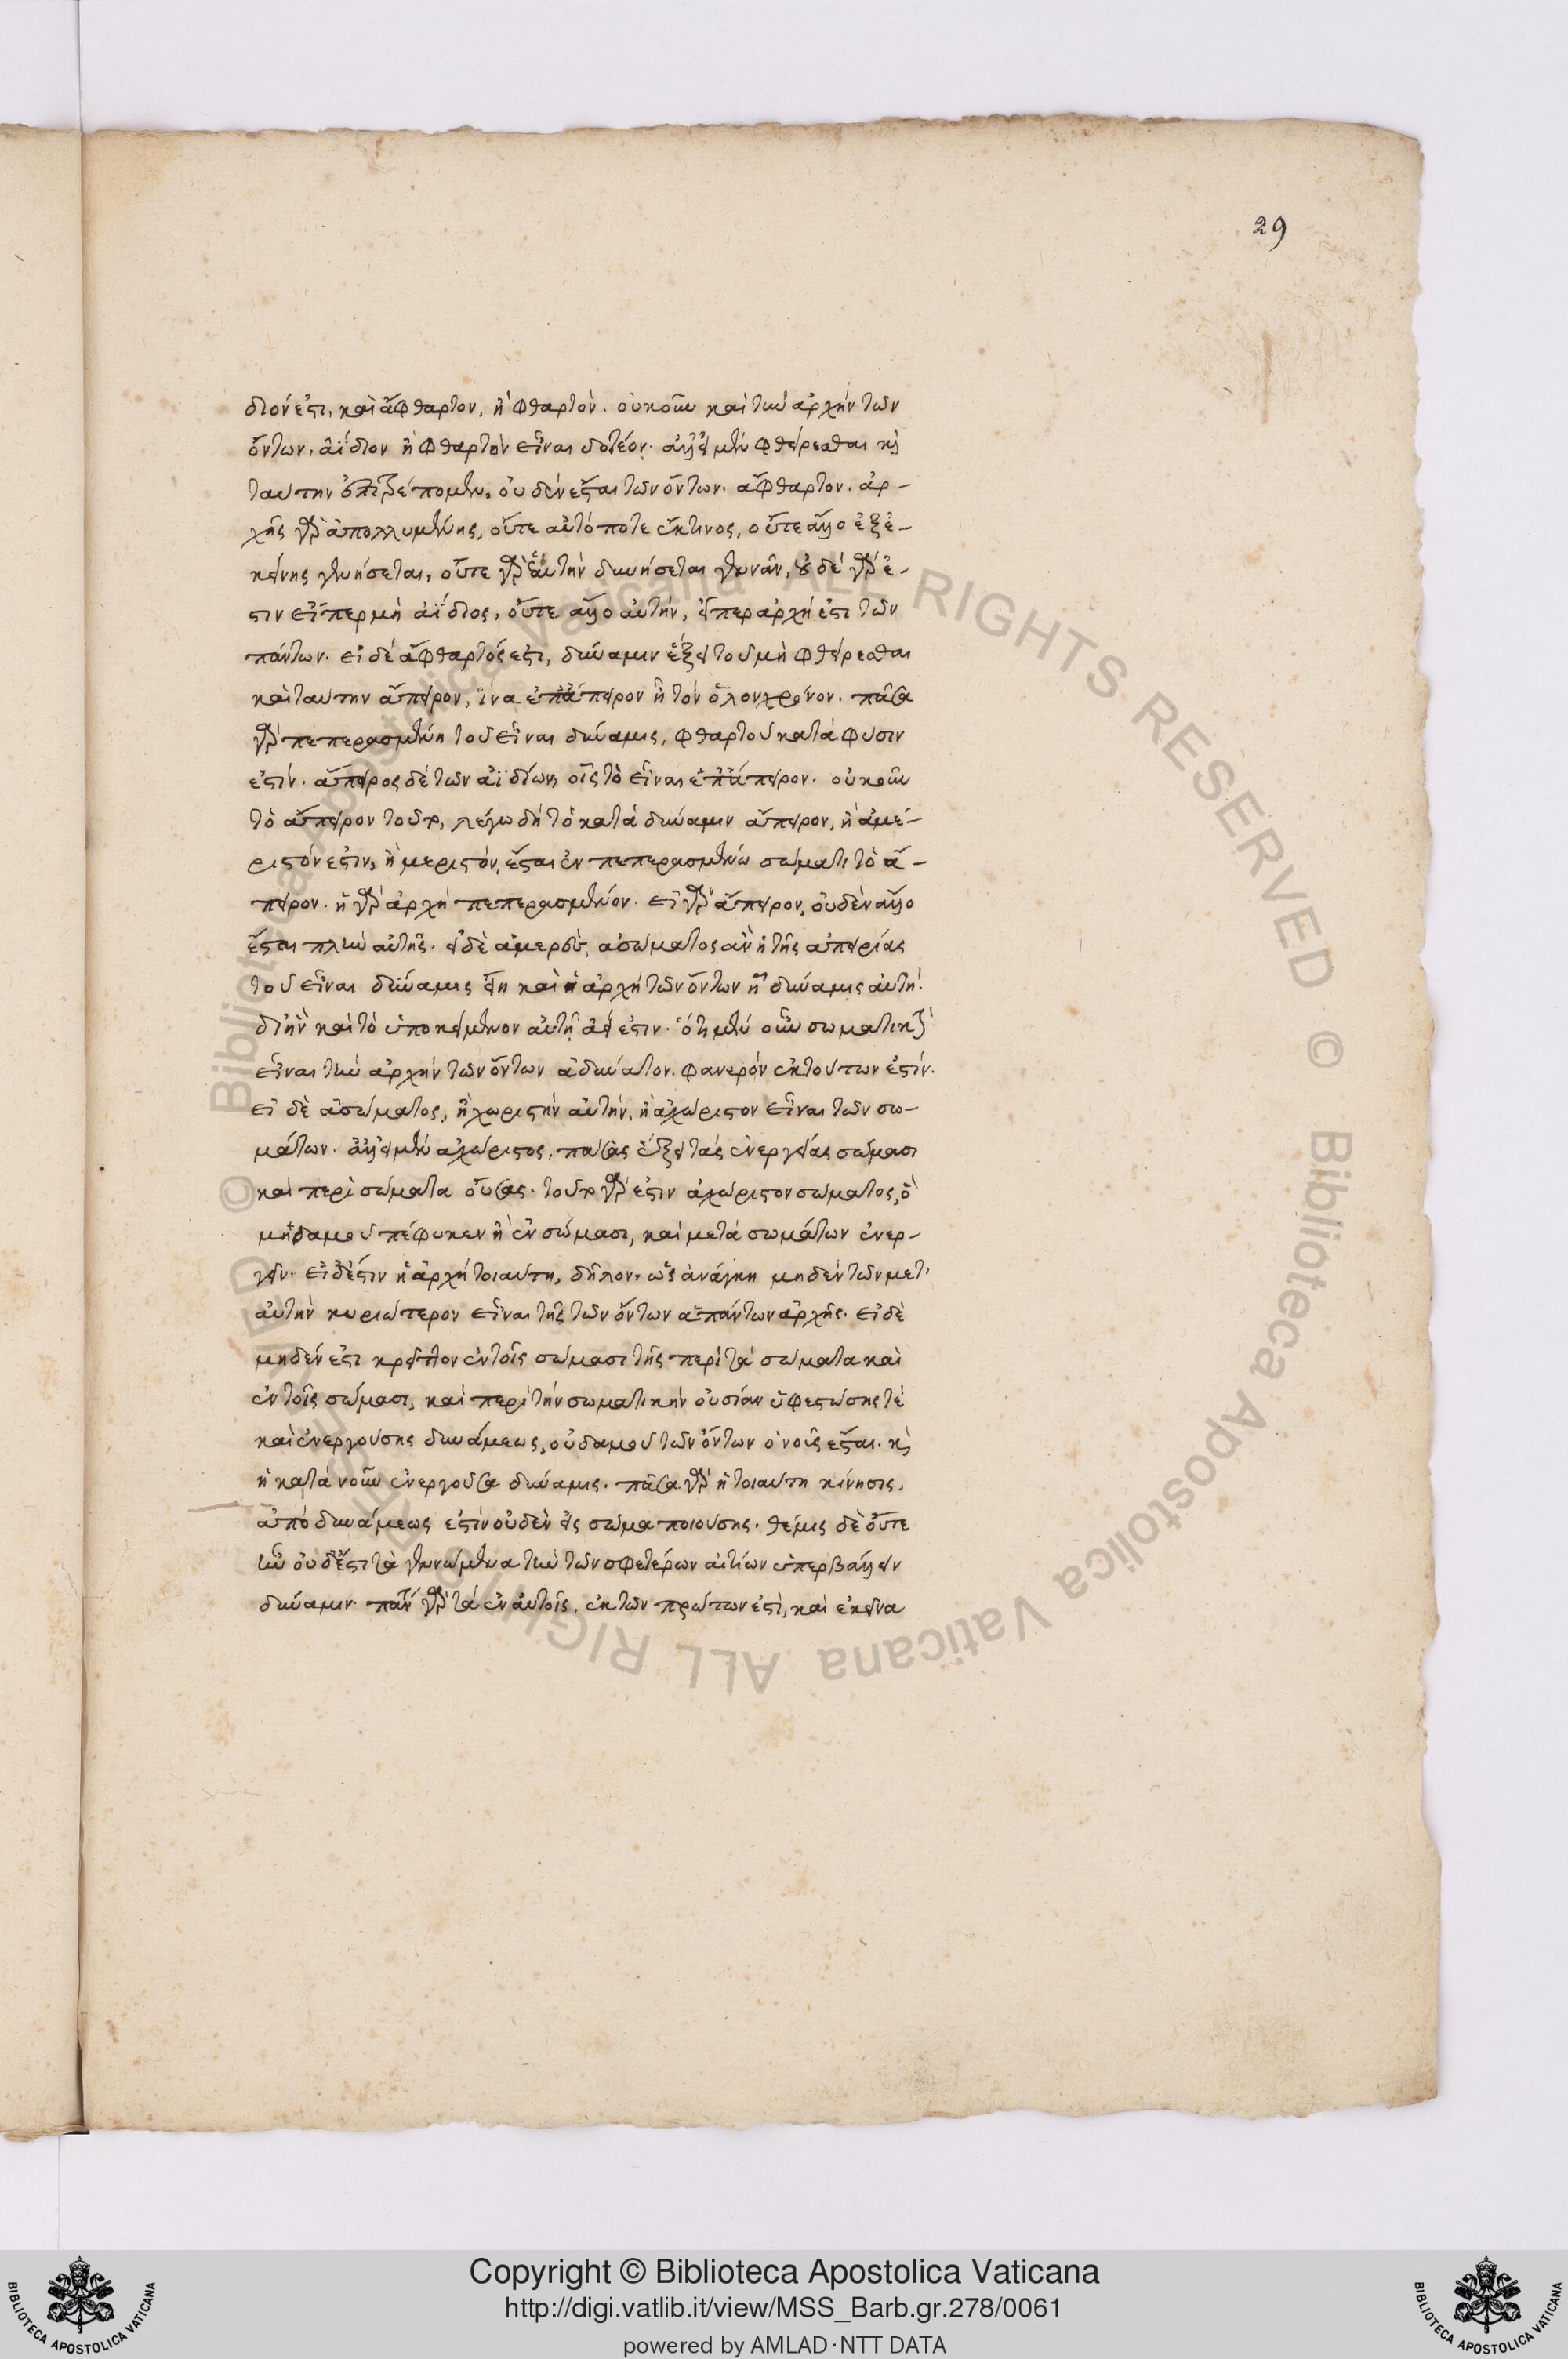 29
διόν ἐστι, καὶ ἄφθαρτον, ἢ φθαρτόν. οὐκοῦν καὶ τὴν ἀρχὴν τῶν
ὄντων, ἀΐδιον ἢ φθαρτὸν εἶναι δοτέον. ἀλλ' εἰ μὲν φθείρεσθαι καὶ
ταύτην ἐπιτρέπομεν, οὐδὲν ἔσται τῶν ὄντων. ἄφθαρτον. ἀρ-
χῆς γὰρ ἀπολλυμένης, οὔτε αὐτό ποτε ἔκ τινος, οὔτε ἄλλο ἐξ ἐ-
κείνης γενήσεται, οὔτε γὰρ ἑαυτὴν δυνήσεται γεννᾶν, οὐδὲ γὰρ ἔ-
στιν εἴπερ μὴ ἀΐδιος, οὔτε ἄλλο αὐτήν, εἴπερ ἀρχή ἐστι τῶν
πάντων. εἰ δὲ ἄφθαρτός ἐστι, δύναμιν ἕξει τοῦ μὴ φθείρεσθαι
καὶ ταύτην ἄπειρον, ἵνα ἐπ' ἄπειρον ἢ τὸν ὅλον χρόνον. πᾶσα
γὰρ πεπερασμένη τοῦ εἶναι δύναμις, φθαρτοῦ κατὰ φύσιν
ἐστίν. ἄπειρος δὲ τῶν ἀϊδίων, οἷς τὸ εἶναι ἐπ' ἄπειρον. οὐκοῦν
τὸ ἄπειρον τοῦτο, λέγω δὴ τὸ κατὰ δύναμιν ἄπειρον, ἢ ἀμέ-
ριστόν ἐστιν, ἢ μεριστόν, ἔσται ἐν πεπερασμένῳ σώματι τὸ ἄ-
πειρον. ἡ γὰρ ἀρχὴ πεπερασμένον. εἰ γὰρ ἄπειρον, οὐδὲν ἄλλο
ἔσται πλὴν αὐτῆς. εἰ δὲ ἀμερὴς, ἀσώματος ἂν ἡ τῆς ἀπειρίας
τοῦ εἶναι δύναμις εἴη καὶ ἡ ἀρχὴ τῶν ὄντων ἡ δύναμις αὐτή.
δι' ἣν καὶ τὸ ὑποκείμενον αὐτῇ ἀεί ἐστιν. ὅτι μὲν οὖν σωματικὴν
εἶναι τὴν ἀρχὴν τῶν ὄντων ἀδύνατον. φανερὸν ἐκ τούτων ἐστίν.
εἰ δὲ ἀσώματος, ἢ χωριστὴν αὐτήν, ἢ ἀχώριστον εἶναι τῶν σω-
μάτων. ἀλλ' εἰ μὲν ἀχώριστος, πάσας ἕξει τὰς ἐνεργείας σώμασι
καὶ περὶ σώματα οὔσας. τοῦτο γάρ ἐστιν ἀχώριστον σώματος, ὃ
μηδαμοῦ πέφυκεν ἢ ἐν σώμασι, καὶ μετὰ σωμάτων ἐνερ-
γεῖν. εἰ δέ ἐστιν ἡ ἀρχὴ τοιαύτη, δῆλον, ὡς ἀνάγκη μηδὲν τῶν μετ'
αὐτὴν κυριώτερον εἶναι τῆς τῶν ὄντων ἁπάντων ἀρχῆς. εἰ δὲ
μηδέν ἐστι κρεῖττον ἐν τοῖς σώμασι τῆς περὶ τὰ σώματα καὶ
ἐν τοῖς σώμασι, καὶ περὶ τὴν σωματικὴν οὐσίαν ὑφεστώσης τέ
καὶ ἐνεργούσης δυνάμεως, οὐδαμοῦ τῶν ὄντων ὁ νοῦς ἔσται. καὶ
ἡ κατὰ νοῦν ἐνεργοῦσα δύναμις. πᾶσα γὰρ ἡ τοιαύτη κίνησις,
ἀπὸ δυνάμεως ἐστὶν οὐδὲν εἰς σῶμα ποιούσης. θέμις δὲ οὔτε
ἦν οὐδ' ἔστι τὰ γεννώμενα τὴν τῶν σφετέρων αἰτίων ὑπερβάλλειν
δύναμιν. πᾶν γὰρ τὰ ἐν αὐτοῖς, ἐκ τῶν πρώτων ἐστί, καὶ ἐκεῖνα
Copyright © Biblioteca Apostolica Vaticana
http://digi.vatlib.it/view/MSS_Barb.gr.278/0061
powered by AMLAD·NTT DATA